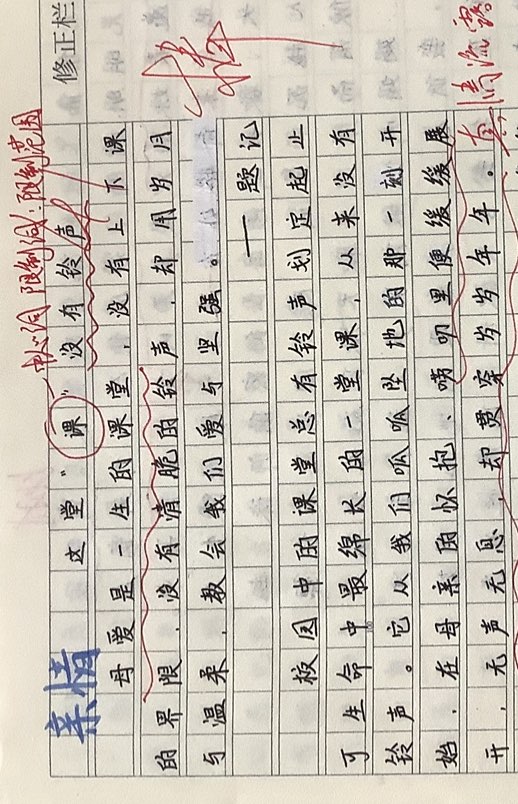 修正栏
中心词 限制词:限制范围
亲情
这堂“课”没有铃声
母爱是一生的课堂,没有上下课
的界限,没有情脆的铃声,却用岁月
与温柔,教会我们爱与坚强。
——题记
校园中的课堂总有铃声划定起止
可生命中最绵长的一堂课,从来没有
铃声。它从我们呱呱坠地的那一刻开
始,在母亲的怀抱、唠叨里便缓缓展
开,无声无息,却贯穿岁岁年年。
真情流露